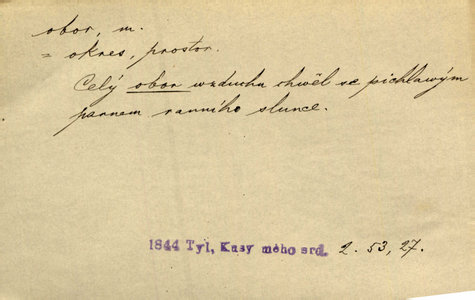 obor, m.
= okres, prostor.
Celý obor vzduchu chwěl se pichlawým
parnem ranního slunce.
1844 Tyl, Kusy mého srd. 2. 53, 27.